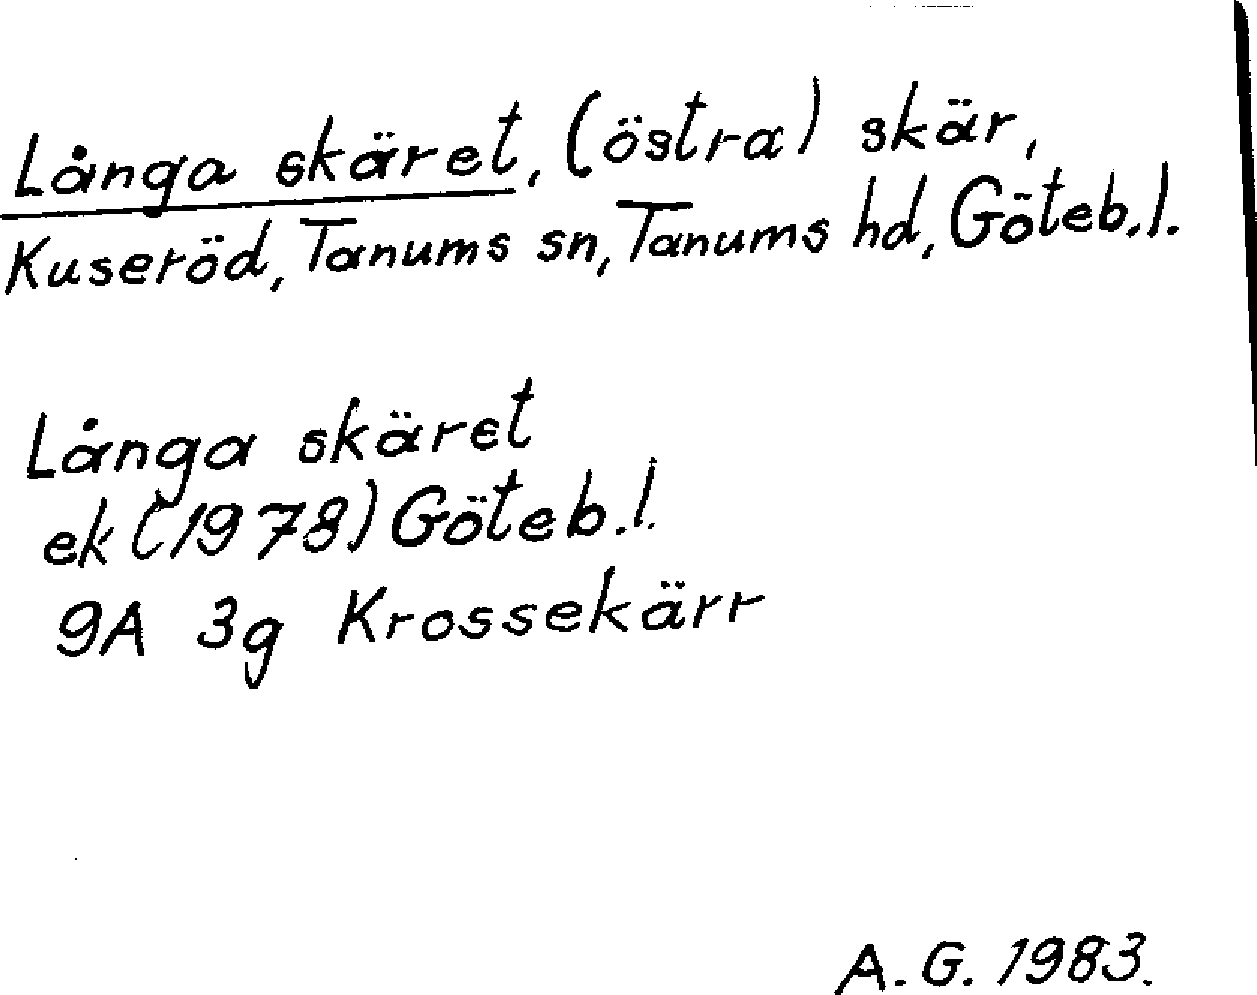 Långa skäret, (östra) skär,
Kuseröd, Tanums sn, Tanums hd, Göteb.l.
Långa skäret
ek (1978) Göteb.l.
9A 3g Krossekärr
A.G. 1983.